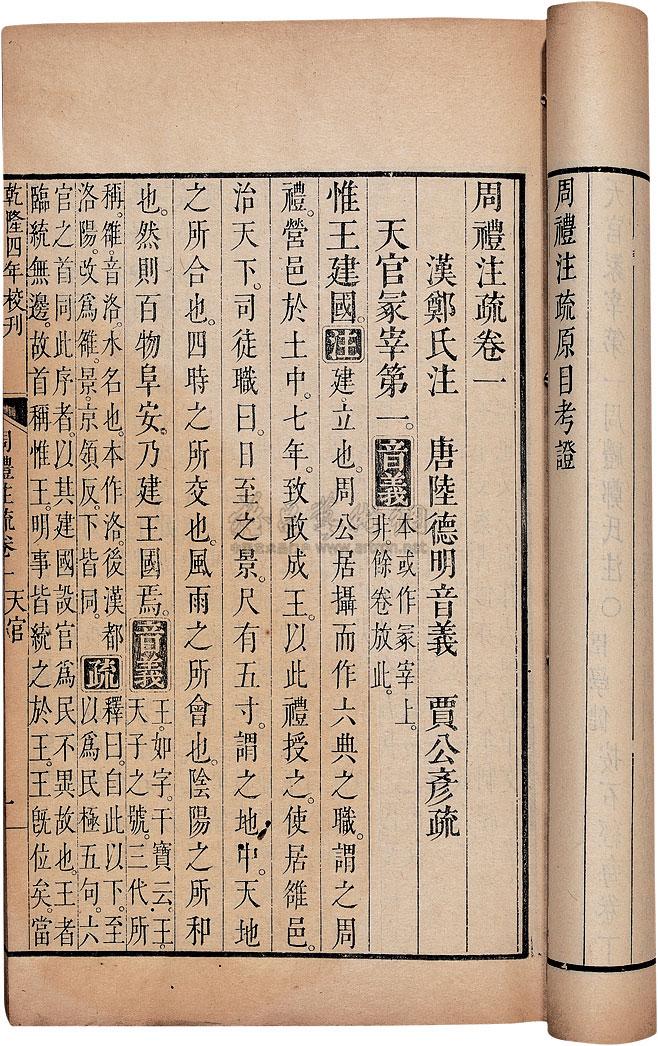 周禮注疏原目考證
周禮注疏卷一
漢鄭氏注　唐陸德明音義　賈公彥疏
天官冢宰第一。音義本或作冢宰上。
非。餘卷放此。
惟王建國。注建立也。周公居攝而作六典之職。謂之周
禮。營邑於土中。七年。致政成王。以此禮授之。使居雒邑。
治天下。司徒職曰。日至之景。尺有五寸。謂之地中。天地
之所合也。四時之所交也。風雨之所會也。陰陽之所和
也。然則百物阜安。乃建王國焉。音義王。如字。干寶云。王。
天子之號。三代所
稱。雒。音洛。水名也。本作洛。後漢都
洛陽。改爲雒。景。京領反。下皆同。疏釋曰。自此以下。至
以爲民極五句。六
官之首同此序者。以其建國設官爲民不異故也。王者
臨統無邊。故首稱惟王。明事皆統之於王。王旣位矣。當
乾隆四年校刊
周禮注疏卷一 天官
一